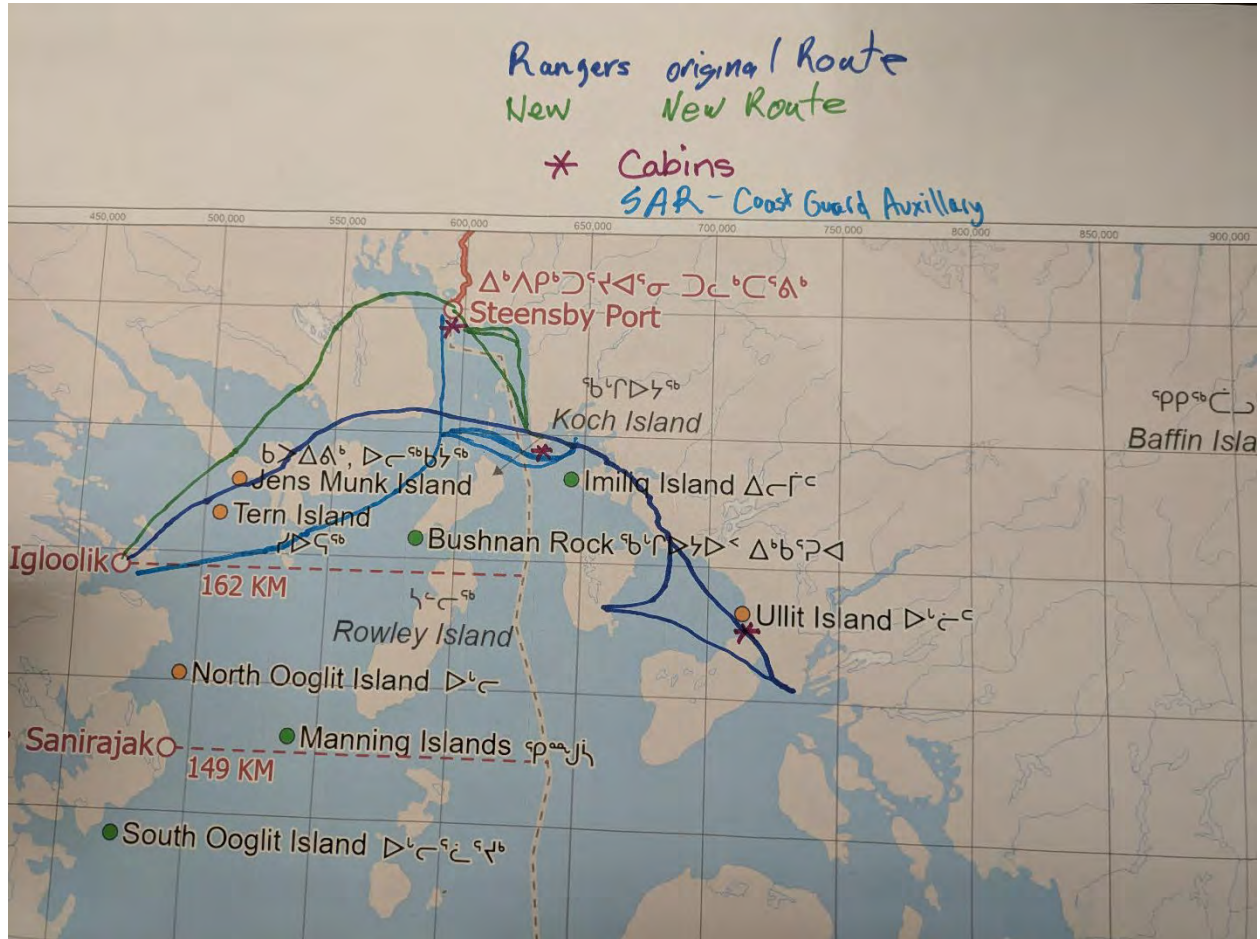 Rangers original Route
New New Route
* Cabins
SAR - Coast Guard Auxillary
450,000 500,000 550,000 600,000 650,000 700,000 750,000 800,000 850,000 900,000
ᐃᒃᐱᑭᒃᑐᕐᔪᐊᕐᓂ ᑐᓚᒃᑕᕐᕕᒃ
Steensby Port
ᖃᒡᒋᐅᔭᖅ
Koch Island
ᕿᑭᖅᑖᓗ
Baffin Isla
ᑲᐳᐃᕕᒃ, ᐅᓕᖅᑲᔭᖅ
Jens Munk Island
Imiliq Island ᐃᓕᒦᑦ
Tern Island
ᓯᐅᕋᖅ
Bushnan Rock ᖃᒡᒋᐅᔭᐅᑉ ᐃᒃᑲᕐᕈᐊ
Igloolik
162 KM
ᓴᓪᓕᖅ
Rowley Island
Ullit Island ᐅᒡᓖᑦ
North Ooglit Island ᐅᒡᓕ
Sanirajak
Manning Islands ᕿᑭᙳᒑ
149 KM
South Ooglit Island ᐅᒡᓕᕐᓛᕐᔪᒃ